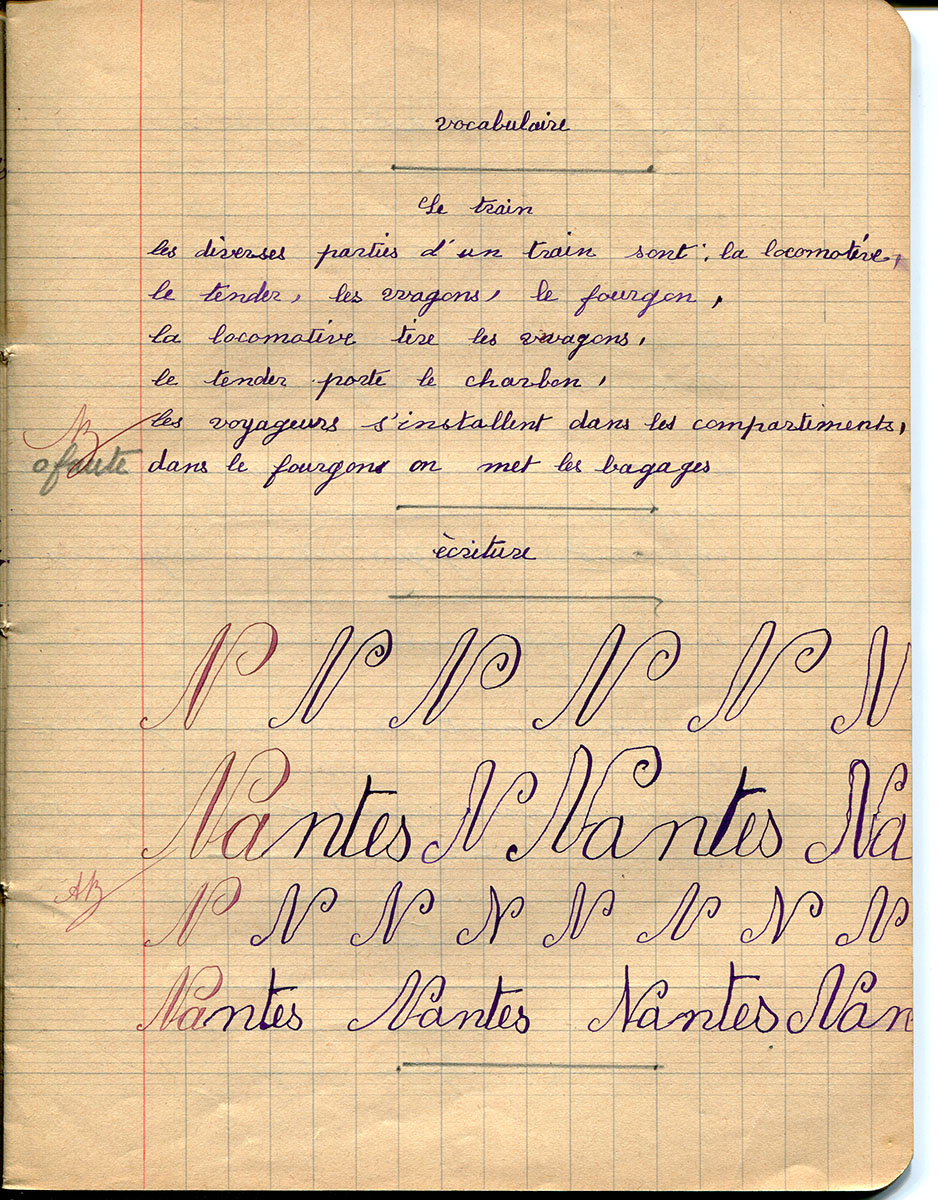 vocabulaire
Le train
les diverses parties d'un train sont : la locomotive,
le tender, les wagons, le fourgon,
la locomotive tire les wagons,
le tender porte le charbon,
les voyageurs s'installent dans les compartiments,
o faute dans le fourgon on met les bagages
écriture
N N N N N N
Nantes N Nantes Na
AB
N N N N N N N N
Nantes Nantes Nantes Nan